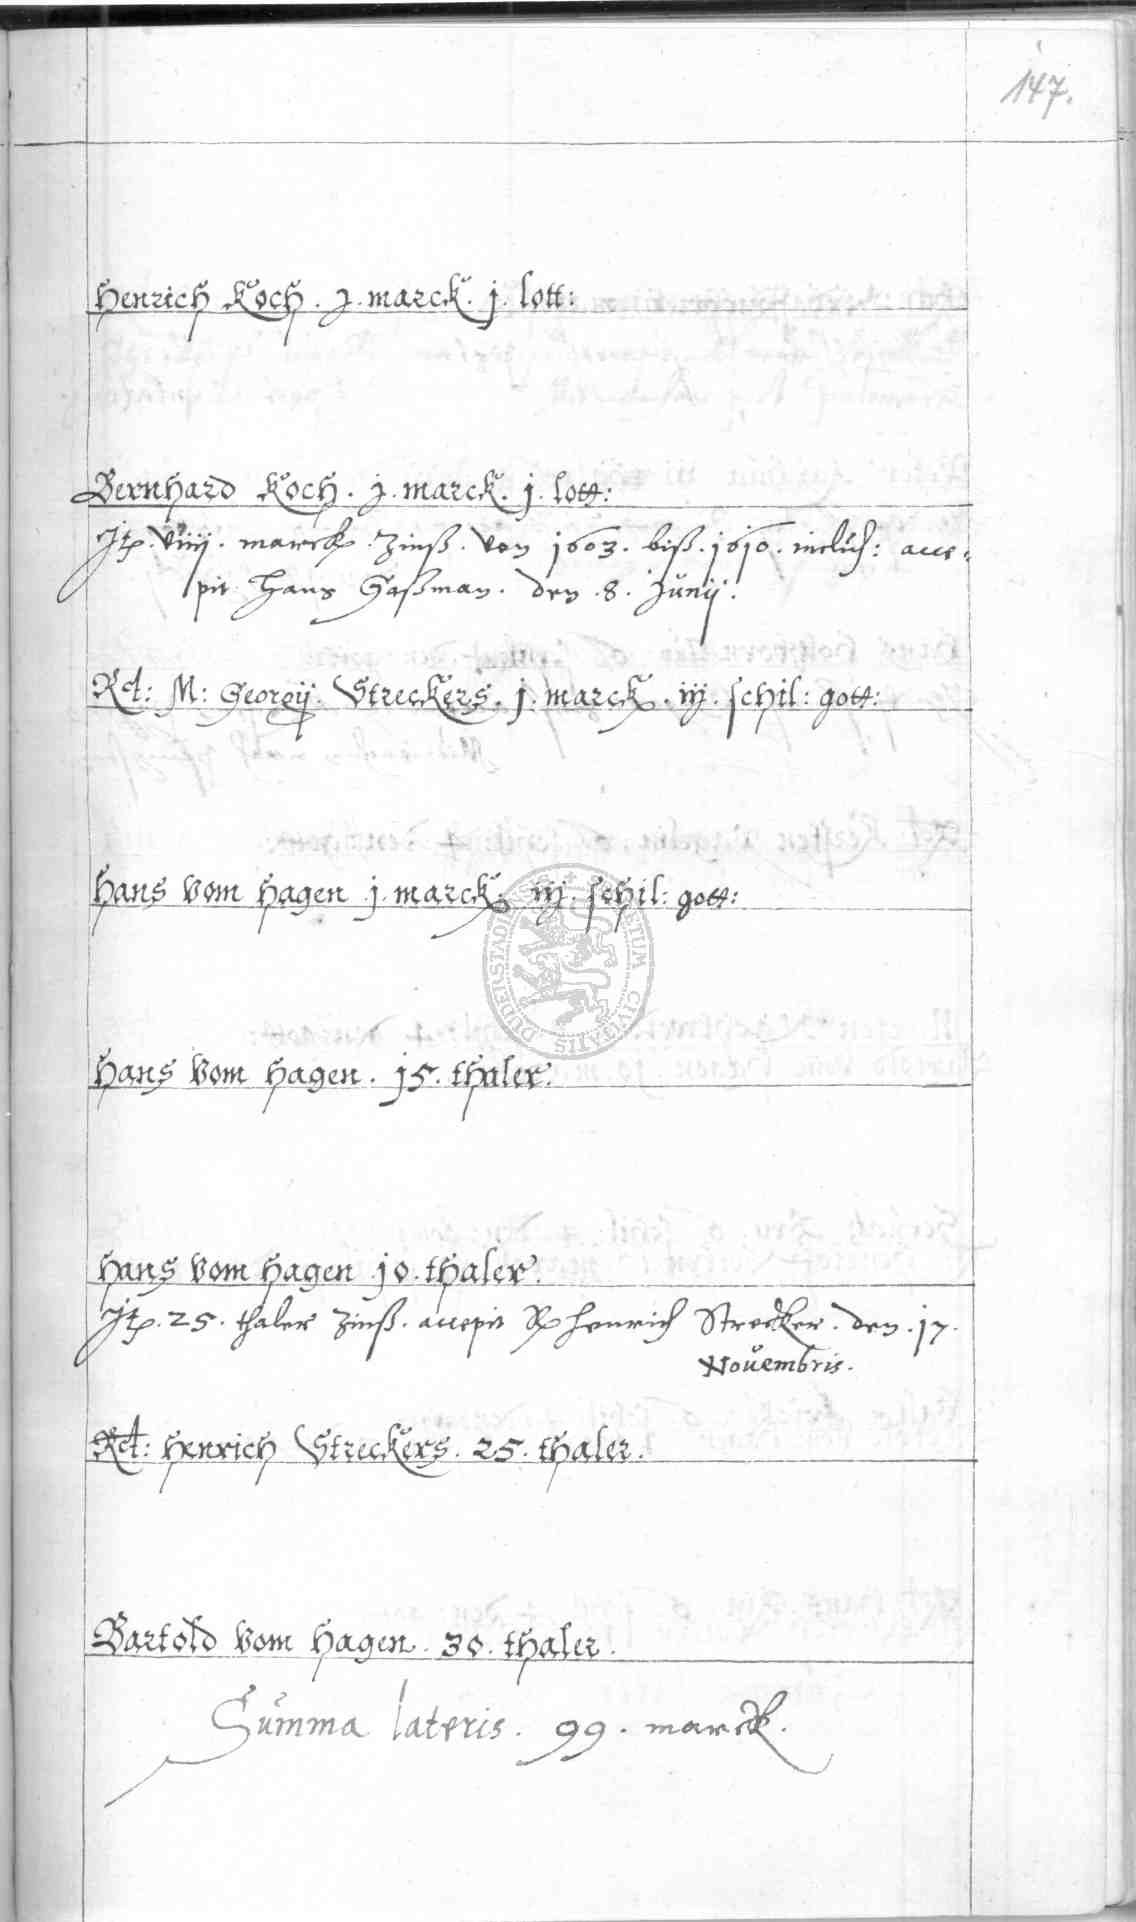 147.
Henrich Koch. j. marck. j. lott:
Bernhard Koch. j. marck. j. lott:
Jtp. viiij. marck. Zinß. von 1603. biß. 1610. inclus: acce-
pit Hans Gaßman. den. 8. Junij.
Rct: M: Georgij. Streckers. j. marck. iij. schil: gott:
Hans vom Hagen j. marck. iij. schil: gott:
Hans vom Hagen. 15. thaler.
Hans vom Hagen 10. thaler.
Jtp. 25. thaler Zinß. accepit Henrich Strecker. den. 17.
Novembris.
Rct: Henrich Streckers. 25. thaler.
Bartold vom Hagen. 30. thaler.
Summa lateris. 99. marck.
DUDERSTAD CIVITATIS